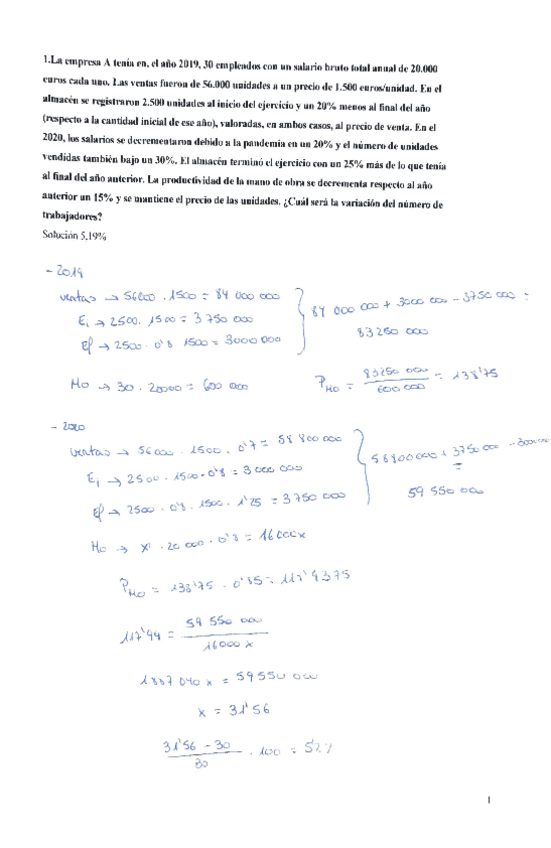 1.La empresa A tenía en, el año 2019, 30 empleados con un salario bruto total anual de 20.000
euros cada uno. Las ventas fueron de 56.000 unidades a un precio de 1.500 euros/unidad. En el
almacén se registraron 2.500 unidades al inicio del ejercicio y un 20% menos al final del año
(respecto a la cantidad inicial de ese año), valoradas, en ambos casos, al precio de venta. En el
2020, los salarios se decrementaron debido a la pandemia en un 20% y el número de unidades
vendidas también bajo un 30%. El almacén terminó el ejercicio con un 25% más de lo que tenía
al final del año anterior. La productividad de la mano de obra se decrementa respecto al año
anterior un 15% y se mantiene el precio de las unidades. ¿Cuál será la variación del número de
trabajadores?
Solución 5,19%
- 2019
ventas → 56000 . 1500 = 84 000 000
Ei → 2500 . 1500 = 3 750 000
Ef → 2500 . 0'8 . 1500 = 3000 000
84 000 000 + 3000 000 - 3750 000 =
83250 000
MO → 30 . 20000 = 600 000
PMO = 83250 000 / 600 000 = 138'75
- 2020
ventas → 56000 . 1500 . 0'7 = 58 800 000
Ei → 2500 . 1500 . 0'8 = 3 000 000
Ef → 2500 . 0'8 . 1500 . 1'25 = 3 750 000
58800000 + 3750 000 - 3000000
=
59 550 000
MO → x . 20 000 . 0'8 = 16000x
PMO = 138'75 . 0'85 = 117'9375
117'94 = 59 550 000 / 16000 x
1887040 x = 59550 000
x = 31'56
31'56 - 30 / 30 . 100 = 5'2%
1